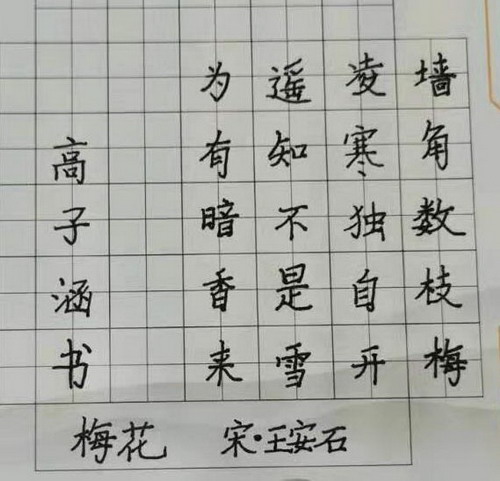 墙角数枝梅
凌寒独自开
遥知不是雪
为有暗香来
高子涵书
梅花 宋·王安石